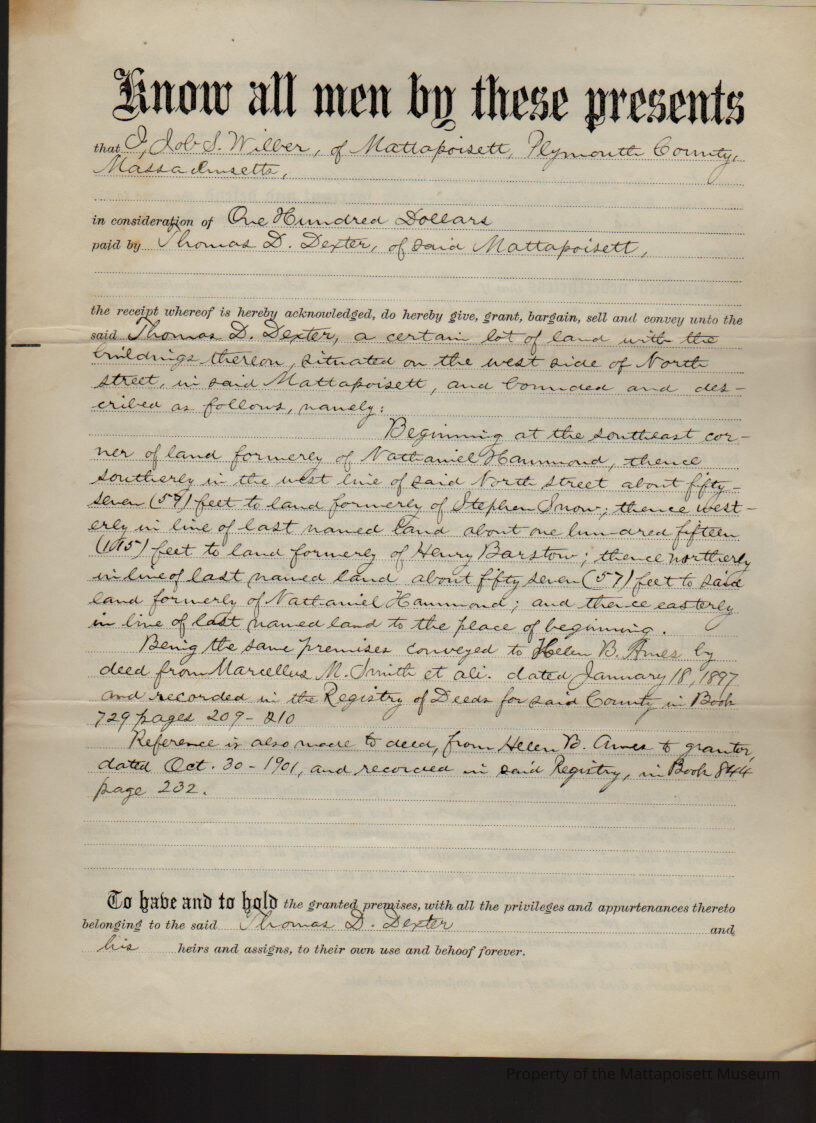 Know all men by these presents
that I, Job S. Wilber, of Mattapoisett, Plymouth County,
Massachusetts,
in consideration of One Hundred Dollars
paid by Thomas D. Dexter, of said Mattapoisett,
the receipt whereof is hereby acknowledged, do hereby give, grant, bargain, sell and convey unto the
said Thomas D. Dexter, a certain lot of land with the
buildings thereon, situated on the west side of North
street, in said Mattapoisett, and bounded and des-
cribed as follows, namely:
Beginning at the southeast cor-
ner of land formerly of Nathaniel Hammond, thence
southerly in the west line of said North street about fifty-
seven (57) feet to land formerly of Stephen Snow; thence west-
erly in line of last named land about one hundred fifteen
(115) feet to land formerly of Henry Barstow; thence northerly
in line of last named land about fifty seven (57) feet to said
land formerly of Nathaniel Hammond; and thence easterly
in line of last named land to the place of beginning.
Being the same premises conveyed to Helen B. Ames by
deed from Marcellus M. Smith et ali. dated January 18, 1897
and recorded in the Registry of Deeds for said County in Book
729 pages 209-210
Reference is also made to deed, from Helen B. Ames to grantor,
dated Oct. 30-1901, and recorded in said Registry, in Book 844
page 232.
To have and to hold the granted premises, with all the privileges and appurtenances thereto
belonging to the said Thomas D. Dexter and
his heirs and assigns, to their own use and behoof forever.
Property of the Mattapoisett Museum